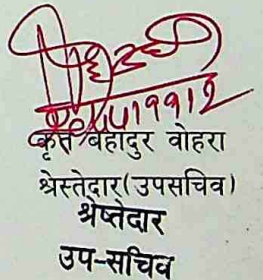 कृत बहादुर वोहरा
श्रेस्तेदार(उपसचिव)
श्रेष्तेदार
उप-सचिव